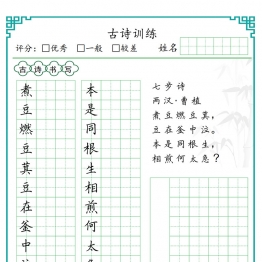 古诗训练
评分：□优秀 □一般 □较差 姓名
古诗书写
煮豆燃豆萁豆在釜中
本是同根生相煎何太
七步诗
两汉·曹植
煮豆燃豆萁，
豆在釜中泣。
本是同根生，
相煎何太急？